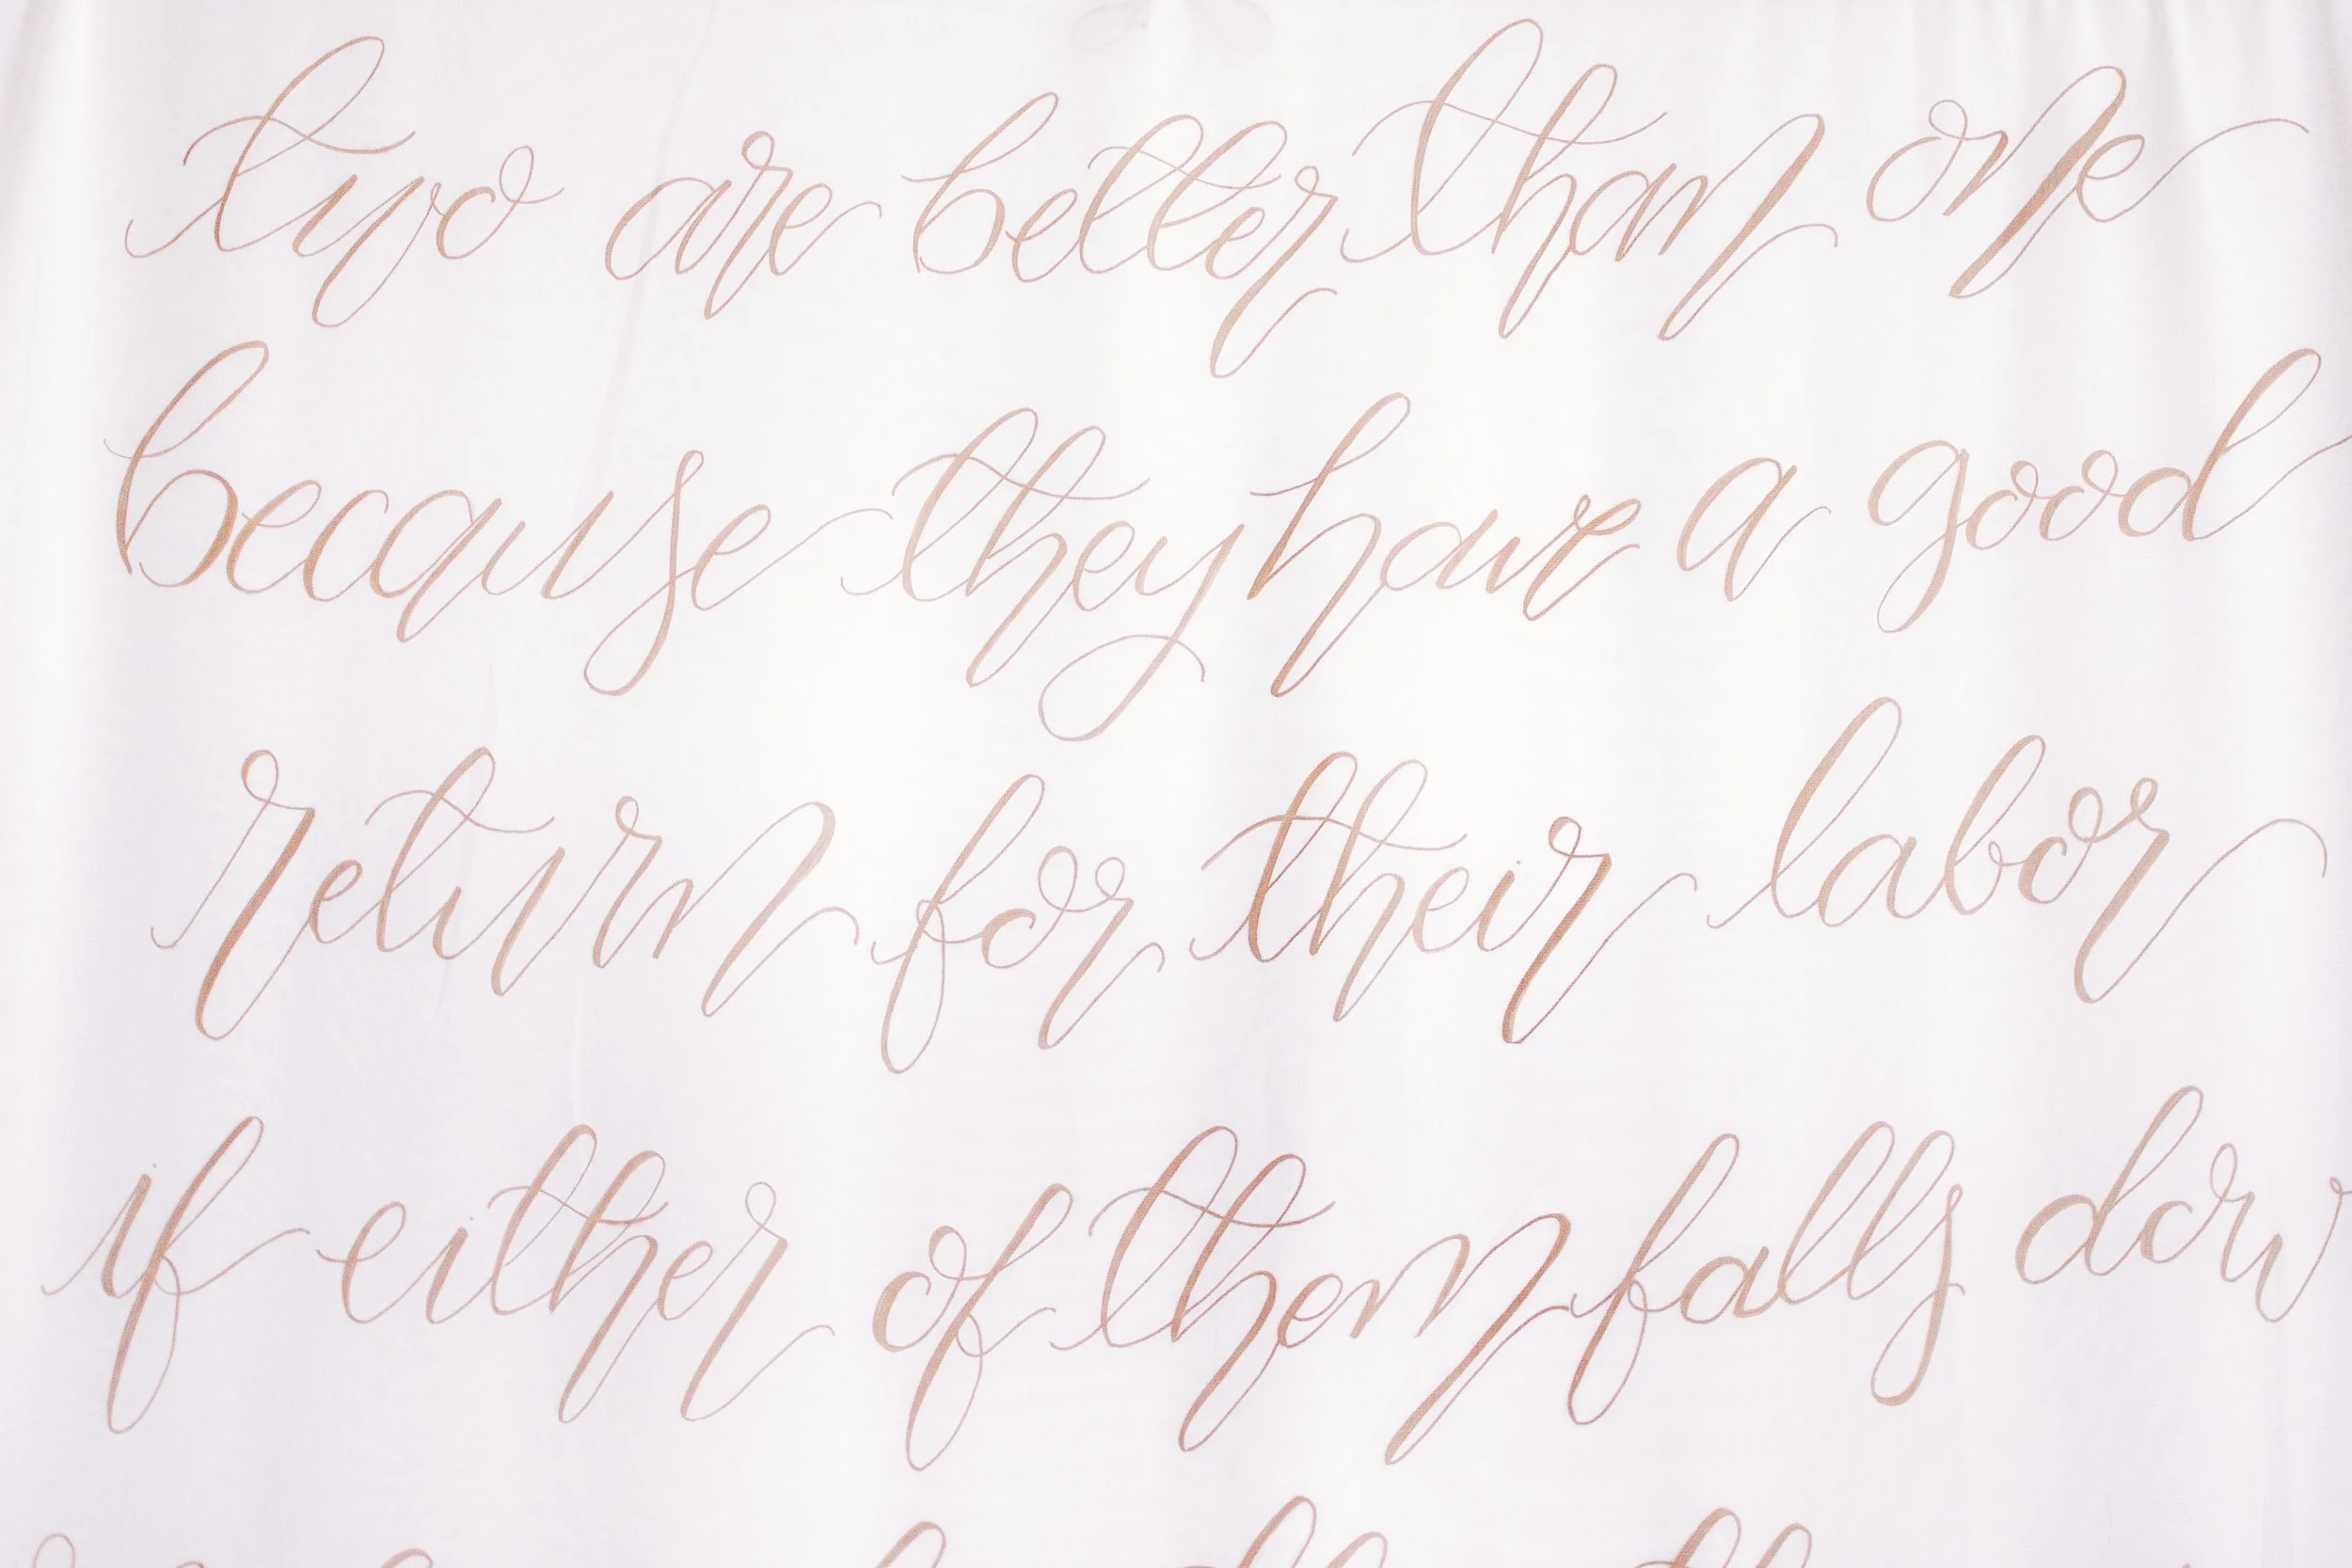 two are better than one
because they have a good
return for their labor
if either of them falls dow